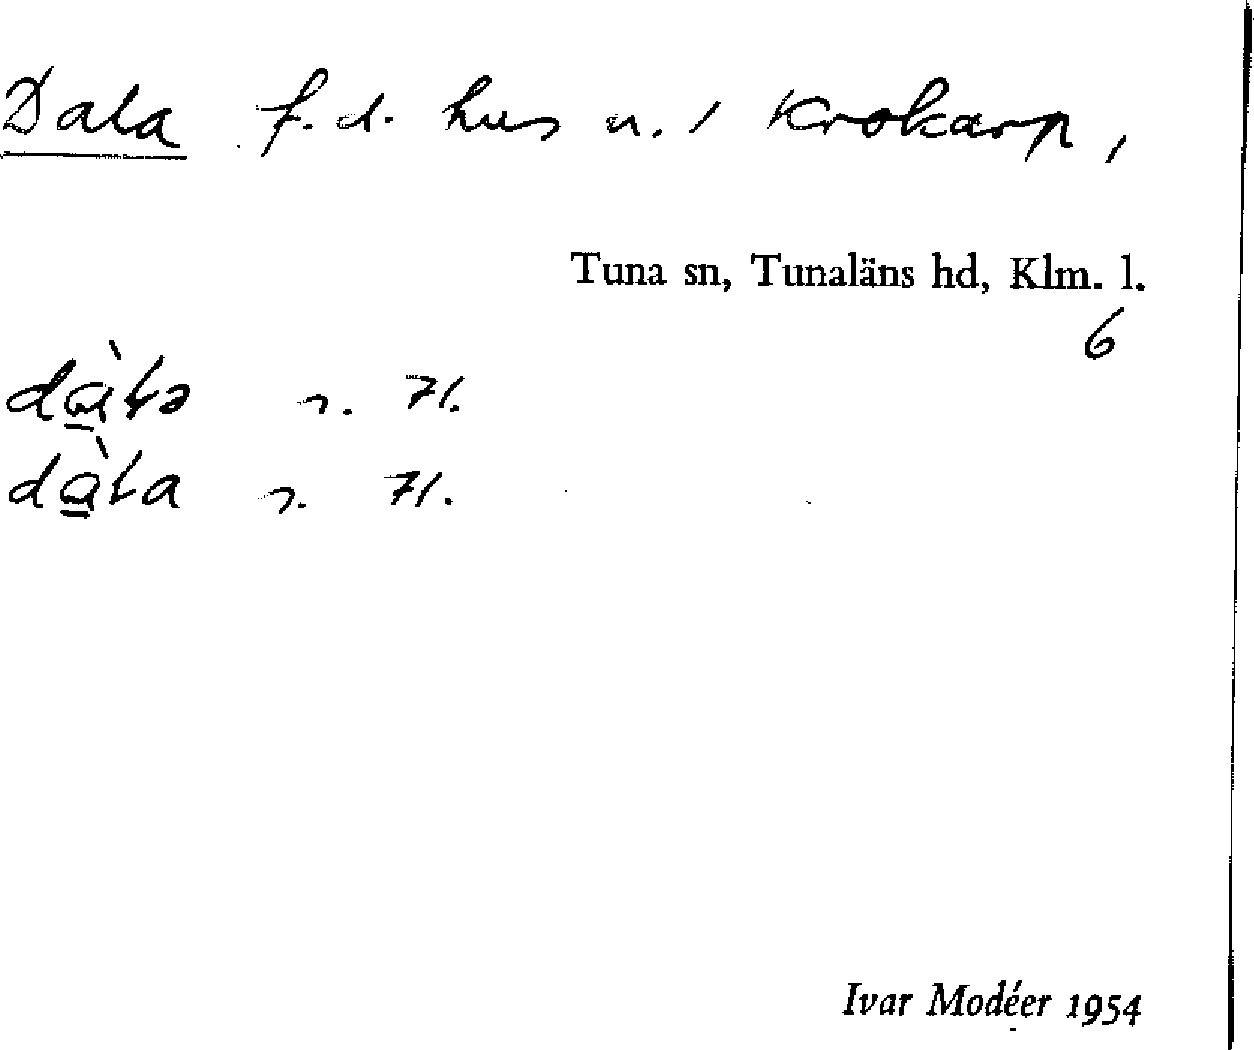 Dala f.d. hus u. / Krokarp,
Tuna sn, Tunaläns hd, Klm. l.
6
dɑ̀lə n. 71.
dɑ̀la n. 71.
Ivar Modéer 1954